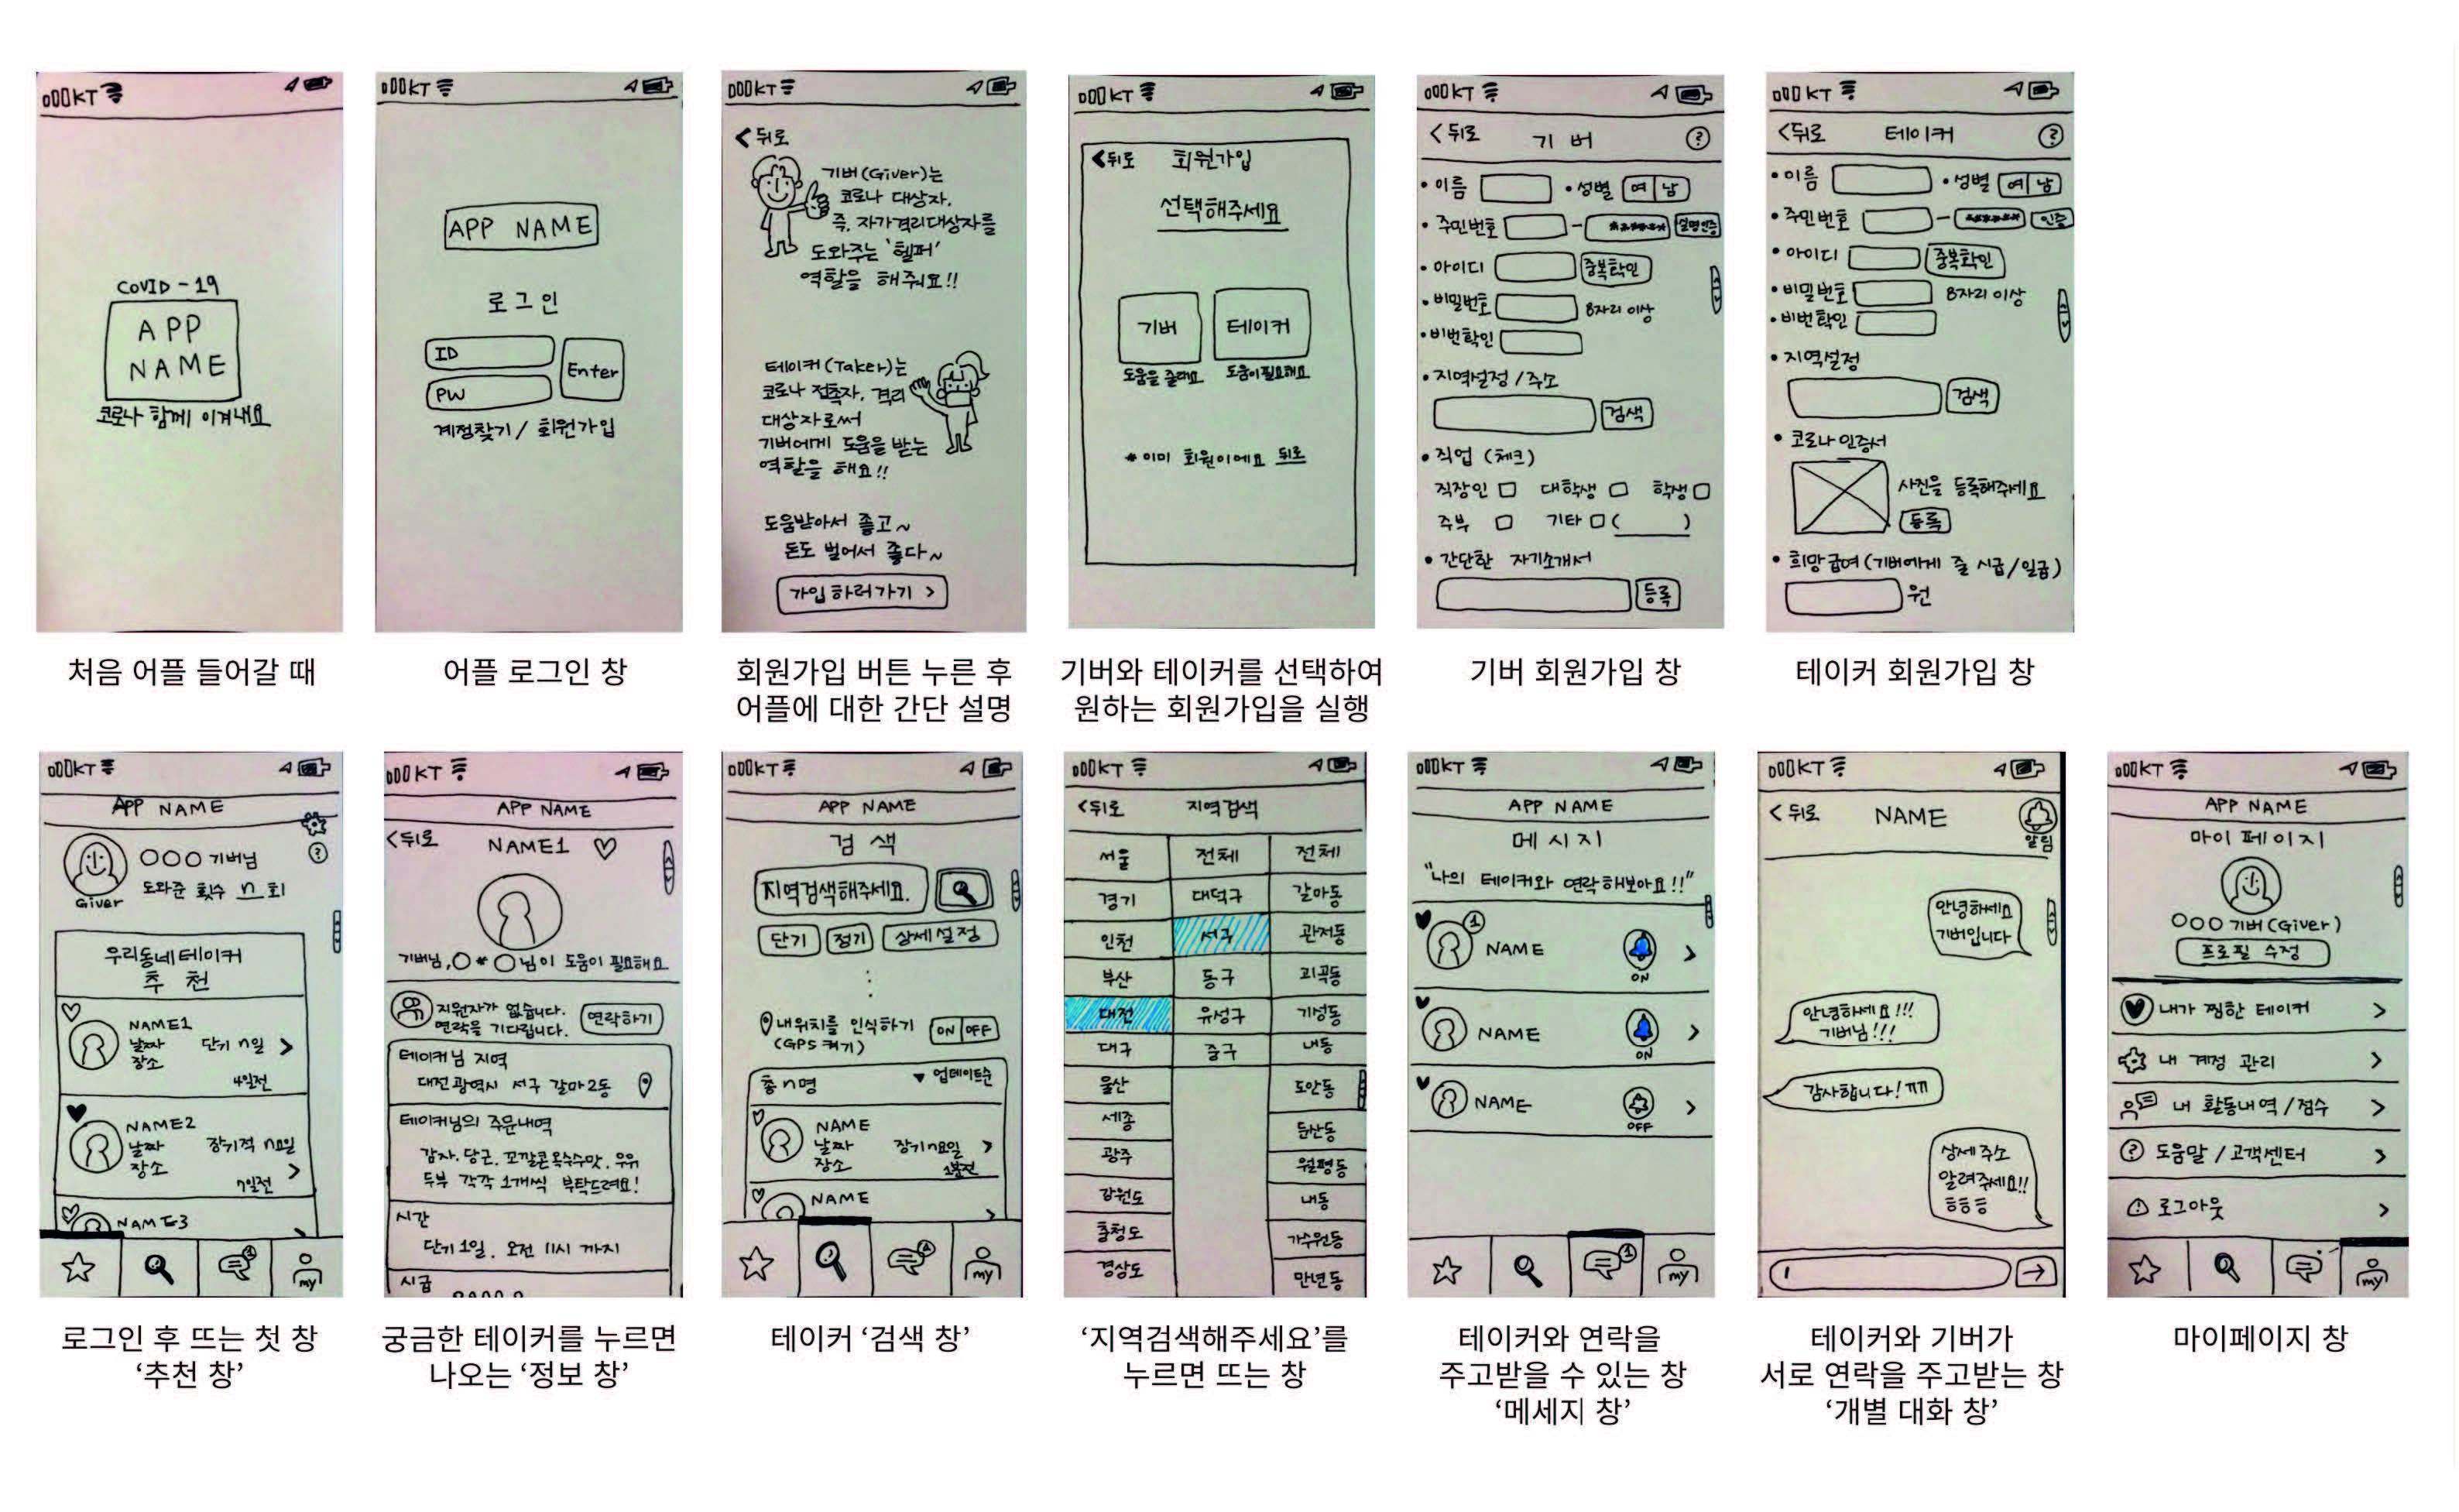 KT
COVID-19
APP
NAME
코로나 함께 이겨내요
처음 어플 들어갈 때
KT
APP NAME
로그인
ID
PW
Enter
계정찾기 / 회원가입
어플 로그인 창
KT
<뒤로
기버(Giver)는
코로나 대상자.
즉, 자가격리대상자를
도와주는 '헬퍼'
역할을 해줘요!!
테이커(Taker)는
코로나 접촉자, 격리
대상자로써
기버에게 도움을 받는
역할을 해요!!
도움받아서 좋고~
돈도 벌어서 좋다~
가입하러가기 >
회원가입 버튼 누른 후
어플에 대한 간단 설명
KT
<뒤로 회원가입
선택해주세요
기버 테이커
도움을 줄래요 도움이필요해요
* 이미 회원이에요 뒤로
기버와 테이커를 선택하여
원하는 회원가입을 실행
KT
<뒤로 기버 ?
• 이름 • 성별 여 남
• 주민번호 - ****** 실명인증
• 아이디 중복확인
• 비밀번호 8자리 이상
• 비번확인
• 지역설정 / 주소
검색
• 직업 (체크)
직장인 대학생 학생
주부 기타 ( )
• 간단한 자기소개서
등록
기버 회원가입 창
KT
<뒤로 테이커 ?
• 이름 • 성별 여 남
• 주민번호 - ****** 인증
• 아이디 중복확인
• 비밀번호 8자리 이상
• 비번확인
• 지역설정
검색
• 코로나 인증서
사진을 등록해주세요
등록
• 희망급여 (기버에게 줄 시급/일급)
원
테이커 회원가입 창
KT
APP NAME
○○○ 기버님 ?
도와준 횟수 n 회
Giver
우리동네 테이커
추천
NAME1
날짜 단기 n일 >
장소
4일전
NAME2
날짜 장기적 n요일
장소 >
7일전
NAME3
my
로그인 후 뜨는 첫 창
‘추천 창’
KT
APP NAME
<뒤로 NAME1
기버님, ○*○님이 도움이 필요해요
지원자가 없습니다.
연락을 기다립니다. 연락하기
테이커님 지역
대전광역시 서구 갈마2동
테이커님의 주문내역
감자. 당근. 꼬깔콘옥수수맛. 우유
두부 각각 1개씩 부탁드려요!
시간
단기 1일. 오전 11시 까지
시급
궁금한 테이커를 누르면
나오는 ‘정보 창’
KT
APP NAME
검색
지역검색해주세요.
단기 정기 상세설정
내위치를 인식하기 ON OFF
(GPS 켜기)
총 n명 ▼ 업데이트순
NAME
날짜 장기n요일 >
장소 1분전
NAME
>
my
테이커 ‘검색 창’
KT
<뒤로 지역검색
서울 전체 전체
경기 대덕구 갈마동
인천 서구 관저동
부산 동구 괴곡동
대전 유성구 기성동
대구 중구 내동
울산 도안동
세종 둔산동
광주 월평동
강원도 내동
충청도 가수원동
경상도 만년동
‘지역검색해주세요’를
누르면 뜨는 창
KT
APP NAME
메시지
"나의 테이커와 연락해보아요!!"
1
NAME >
ON
NAME >
ON
NAME >
OFF
1
my
테이커와 연락을
주고받을 수 있는 창
‘메세지 창’
KT
<뒤로 NAME
알림
안녕하세요
기버입니다
안녕하세요!!!
기버님!!!
감사합니다! ㅠㅠ
상세주소
알려주세요!!
ㅎㅎㅎ
테이커와 기버가
서로 연락을 주고받는 창
‘개별 대화 창’
KT
APP NAME
마이 페이지
○○○ 기버(Giver)
프로필 수정
내가 찜한 테이커 >
내 계정 관리 >
내 활동내역 / 점수 >
? 도움말 / 고객센터 >
로그아웃 >
my
마이페이지 창